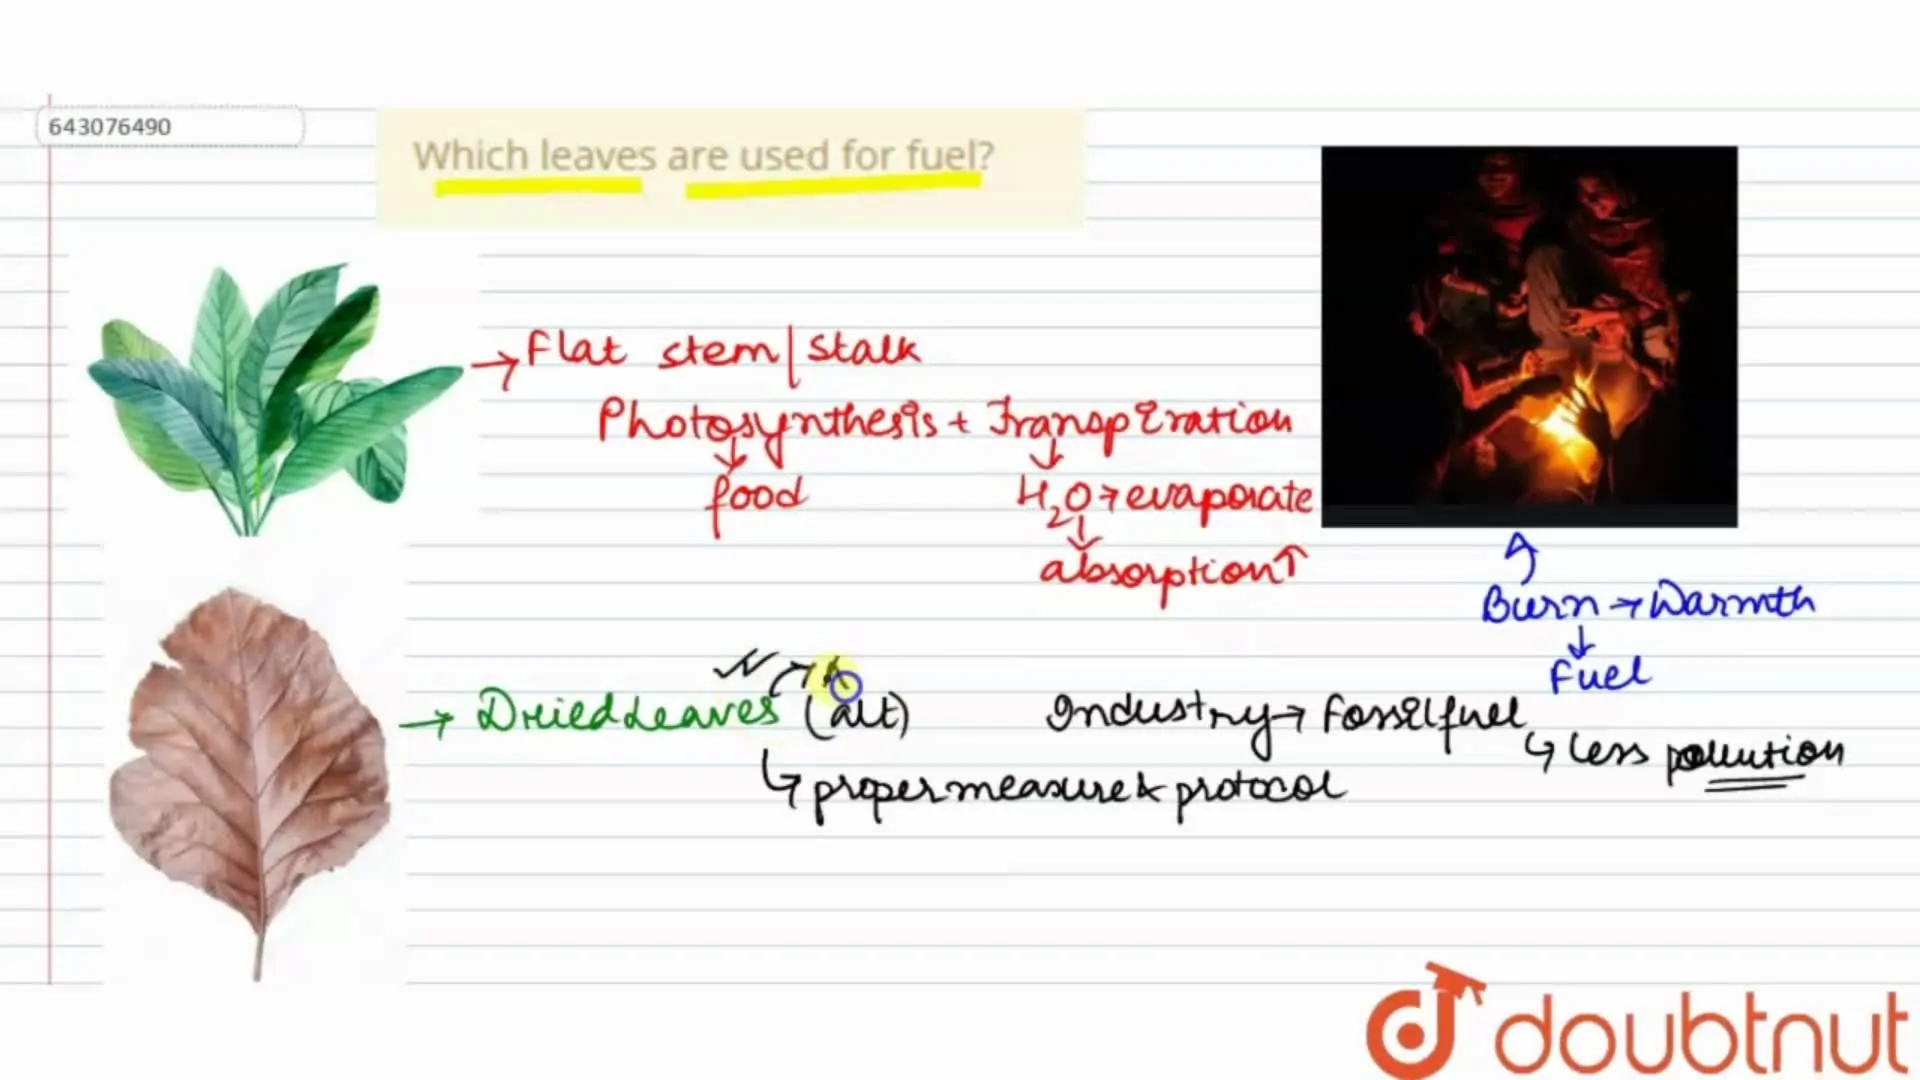 643076490
Which leaves are used for fuel?
→ Flat stem | stalk
Photosynthesis + Transpiration
↓ ↓
food H₂O → evaporate
↓
absorption ↑
Burn → Warmth
↓
Fuel
→ Dried Leaves (alt) Industry → Fossil fuel
↳ less pollution
↳ proper measure & protocol
doubtnut